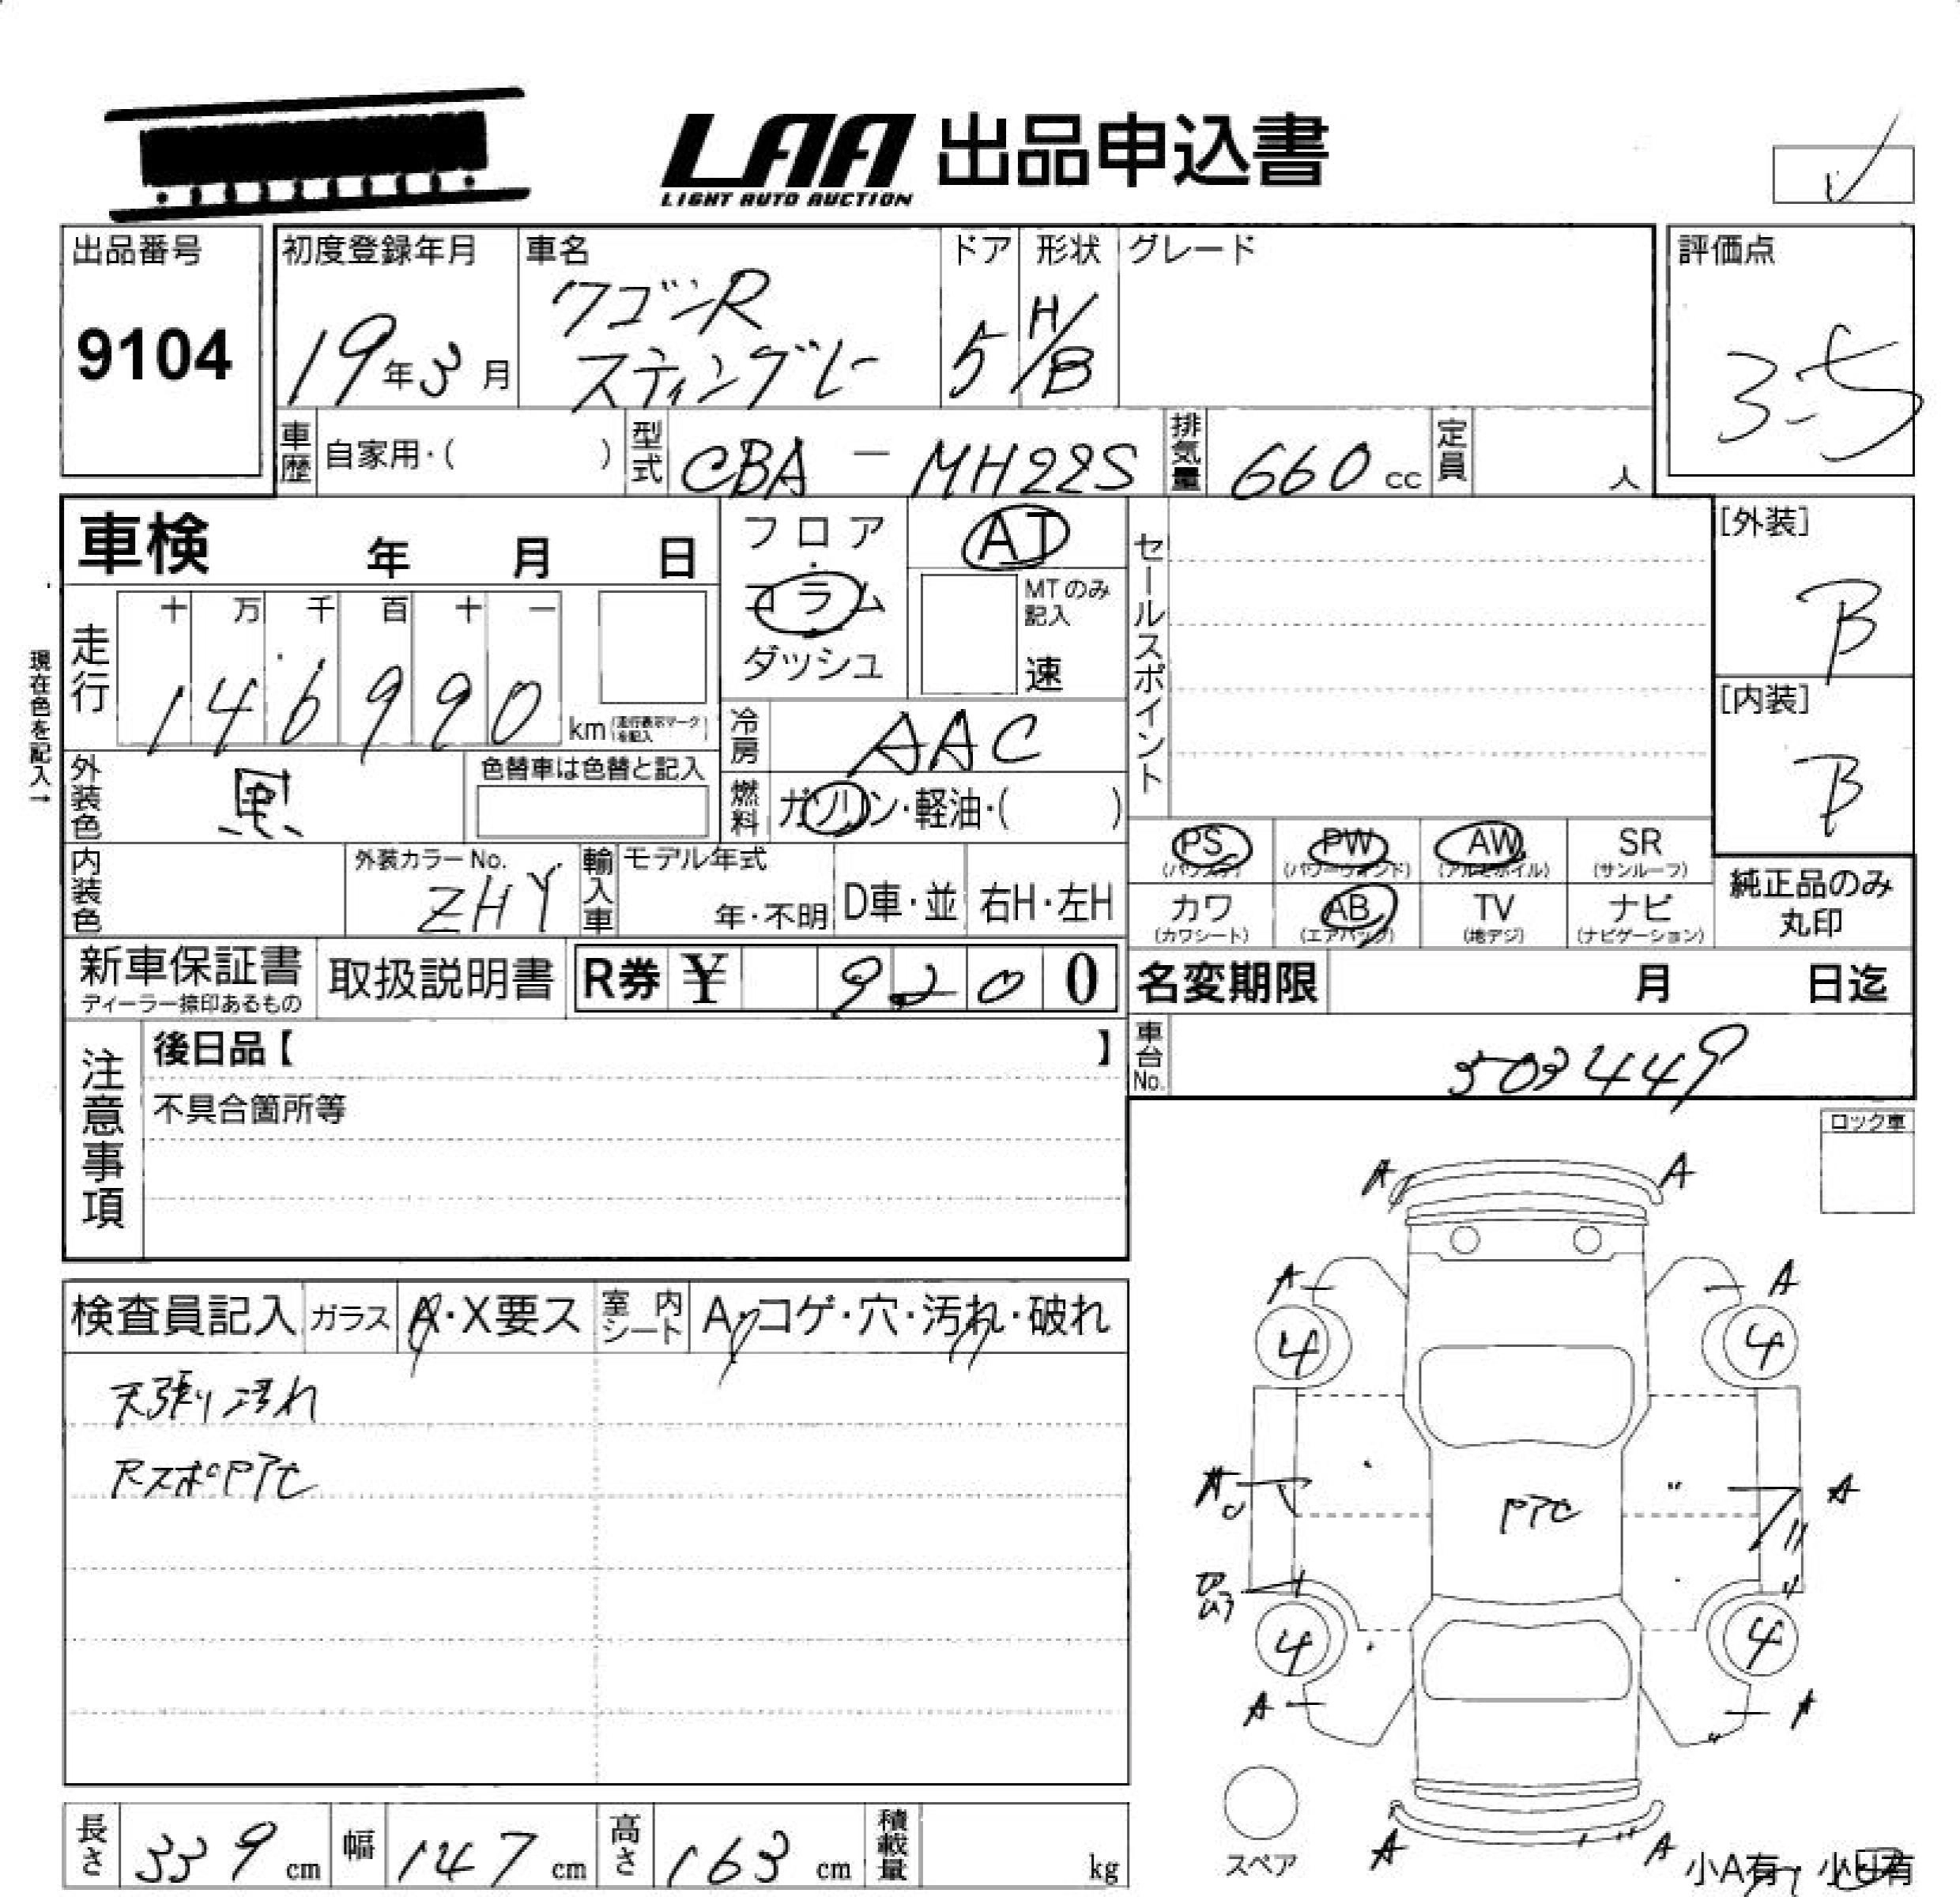 LAA 出品申込書
LIGHT AUTO AUCTION
出品番号
9104
初度登録年月
19年3月
車名
ワゴンR
スティングレー
ドア
5
形状
H/B
グレード
評価点
3.5
車歴 自家用・( )
型式 CBA - MH22S
排気量 660 cc
定員 人
車検 年 月 日
フロア
・
コラム
・
ダッシュ
AT
MTのみ
記入
速
セールスポイント
[外装]
B
[内装]
B
現在色を記入→
走行
十 万 千 百 十 一
1 4 6 9 9 0
km (走行表示マークを記入)
冷房 AAC
外装色 黒
色替車は色替と記入
燃料 ガソリン・軽油・( )
PS (パワステ)
PW (パワーウィンド)
AW (アルミホイル)
SR (サンルーフ)
カワ (カワシート)
AB (エアバッグ)
TV (地デジ)
ナビ (ナビゲーション)
純正品のみ
丸印
内装色
外装カラーNo.
ZHY
輸入車
モデル年式
年・不明
D車・並
右H・左H
新車保証書
ディーラー捺印あるもの
取扱説明書
R券 ¥ 9200
名変期限 月 日迄
車台No. 503449
注意事項
後日品【 】
不具合箇所等
ロック車
検査員記入
ガラス A・X要ス
室内シート A・コゲ・穴・汚れ・破れ
天張り汚れ
RスポPTC
A A
A A
4 4
A A
PTC
4 4
A A
A A
スペア
小A有・小U有
長さ 339 cm
幅 147 cm
高さ 163 cm
積載量 kg